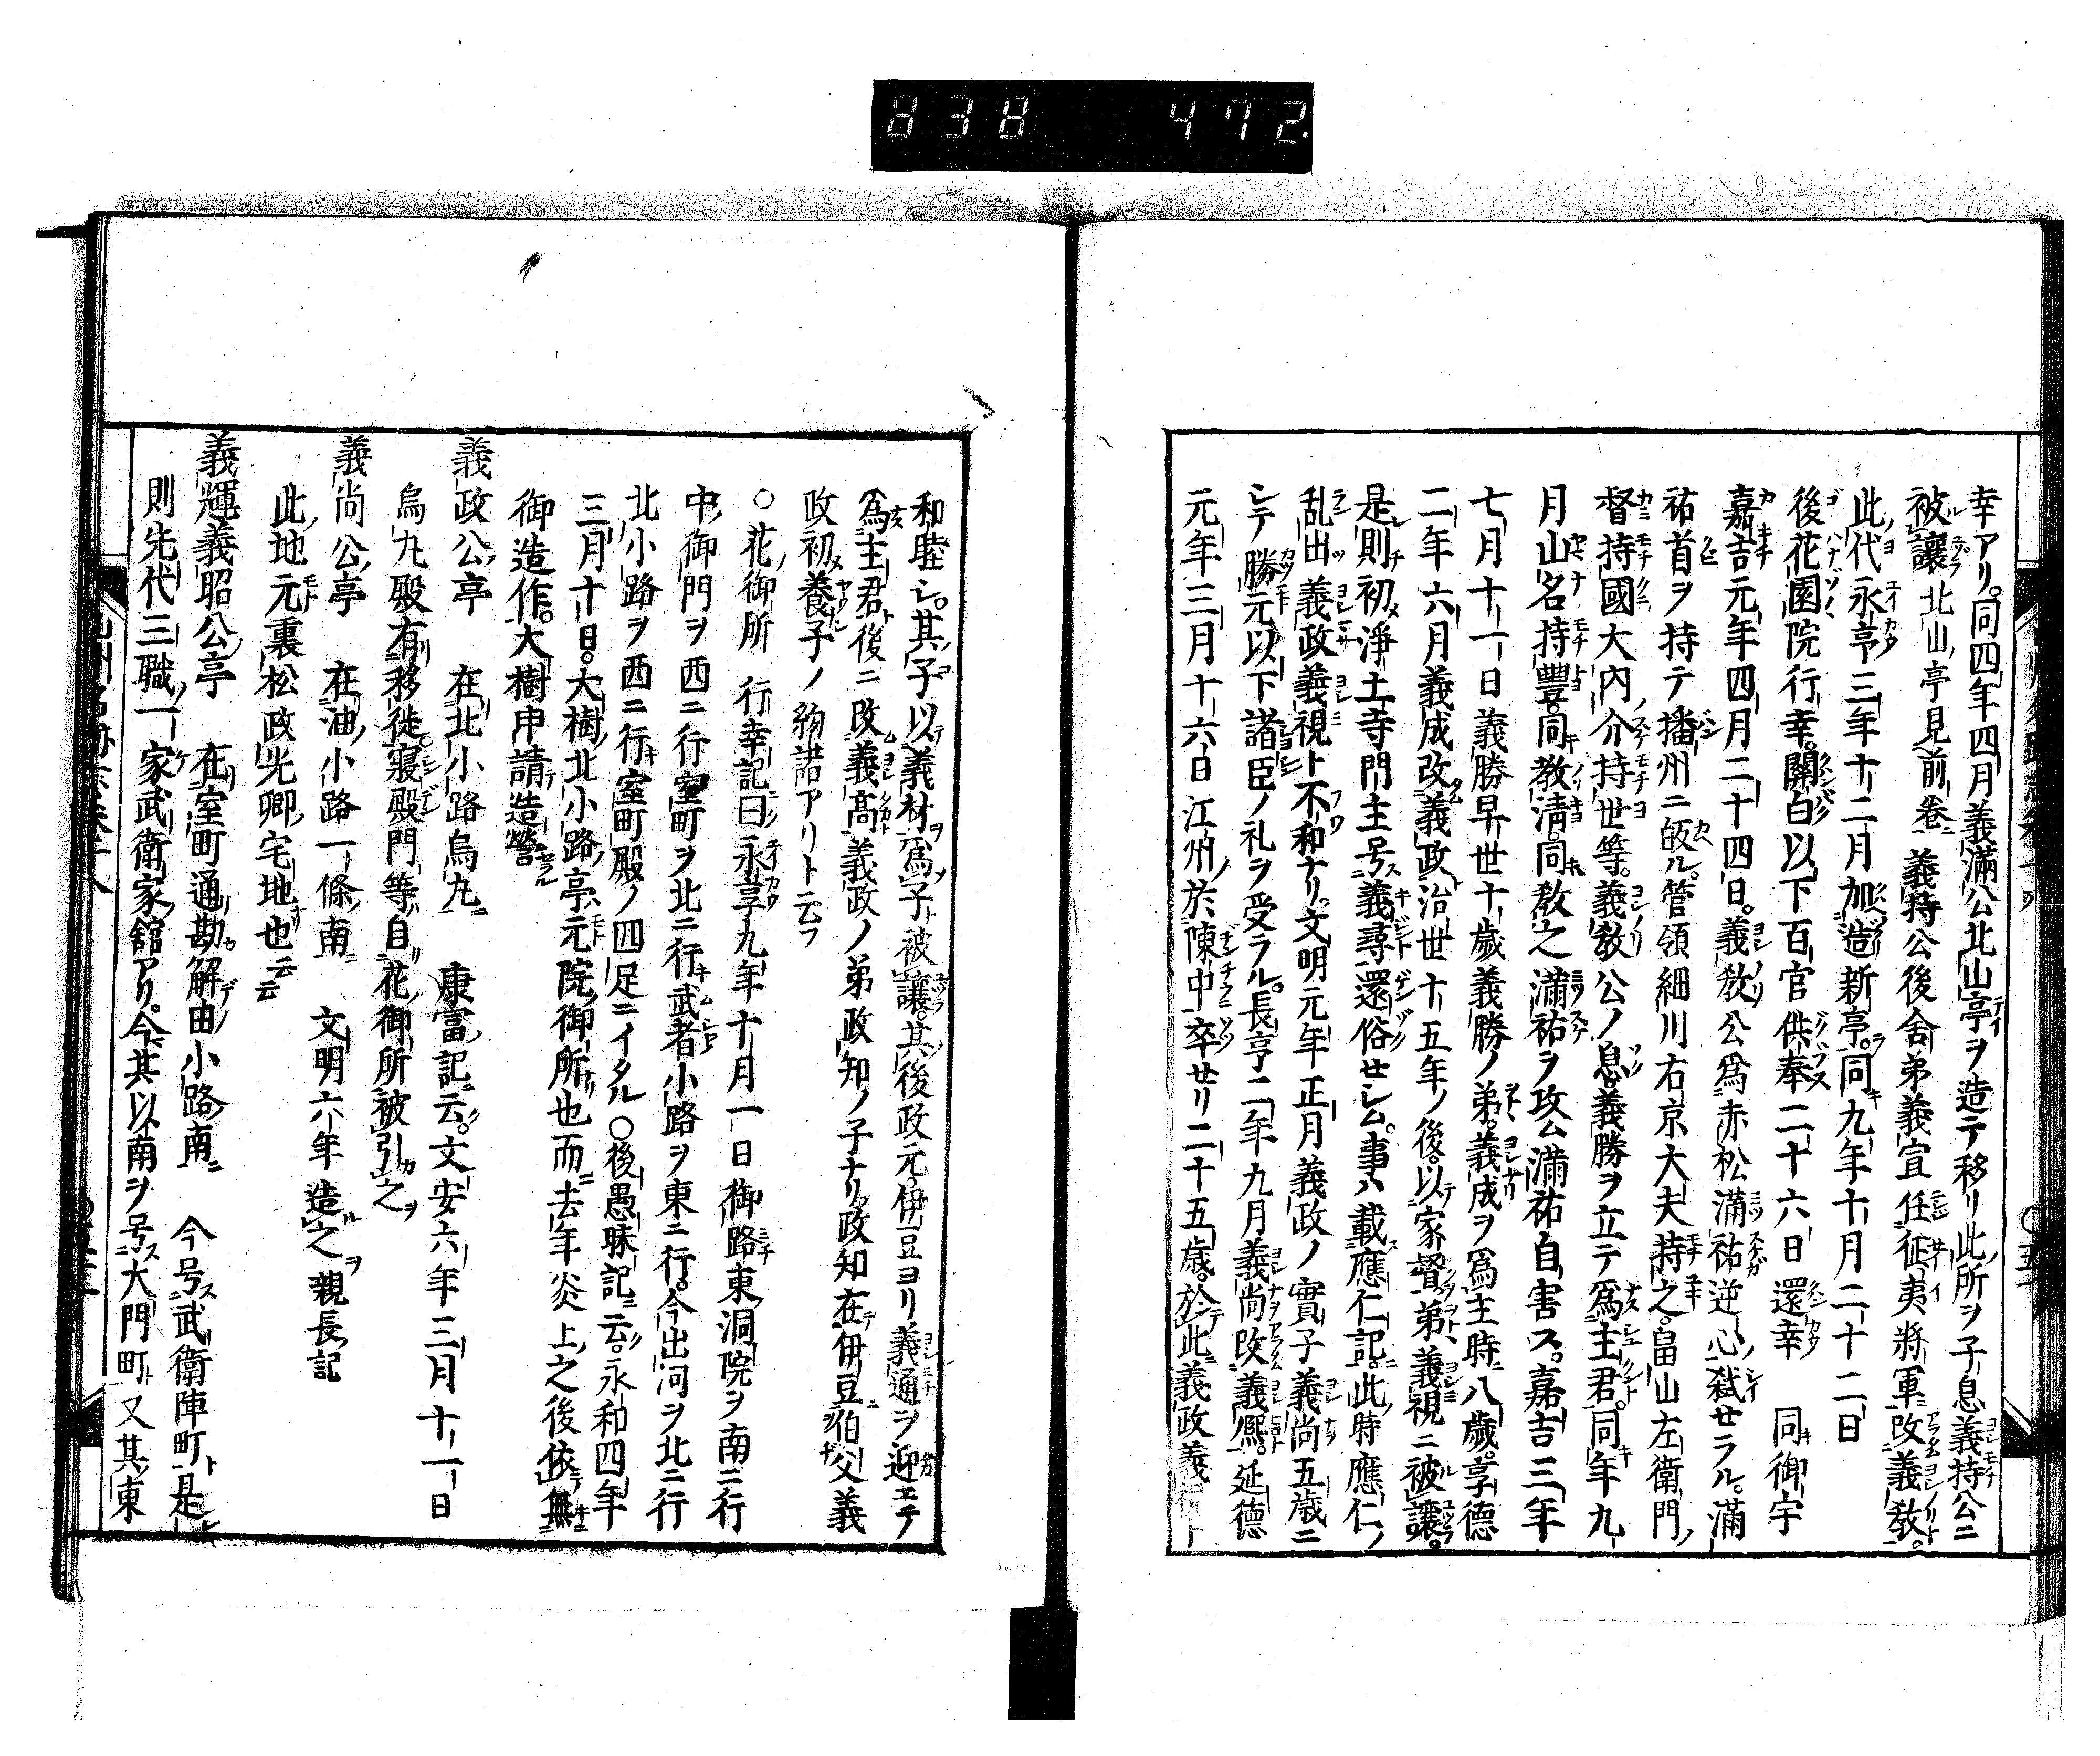 838 472
幸アリ。同四年四月義満公北山亭ヲ造テ移リ此所ヲ子息義持公ニ
被讓 北山亭見前卷 義持公後舍弟義宣任征夷將軍改義教。
此代永享三年十二月加造新亭。同九年十月二十二日
後花園院行幸。關白以下百官供奉二十六日還幸 同御宇
嘉吉元年四月二十四日。義教公爲赤松滿祐逆心弑セラル。滿
祐首ヲ持テ播州ニ皈ル。管領細川右京大夫持之。畠山左衛門
督持國大内介持世等。義教公ノ息義勝ヲ立テ爲主君。同年九
月山名持豐。同教清。同教之滿祐ヲ攻ム滿祐自害ス。嘉吉三年
七月十一日義勝早世十歳義勝ノ弟。義成ヲ爲主時八歳。享德
二年六月義成改義政治世十五年ノ後。以家督弟義視ニ被讓。
是則初淨土寺門主号義尋還俗セシム。事ハ載應仁記。此時應仁ノ
乱出義政義視ト不和ナリ。文明元年正月義政ノ實子義尚五歳ニ
シテ勝元以下諸臣ノ礼ヲ受ラル。長享二年九月義尚改義凞。延德
元年三月十六日江州於陳中卒セリ二十五歳。於此義政義視ト
和睦シ。其子以義材爲子被讓。其後政元伊豆ヨリ義通ヲ迎エテ
爲主君後ニ改義髙義政ノ弟政知ノ子ナリ。政知在伊豆伯父義
政初養子ノ約諾アリト云フ
○花御所 行幸記曰永享九年十月一日御路東洞院ヲ南ニ行
中御門ヲ西ニ行室町ヲ北ニ行武者小路ヲ東ニ行。今出河ヲ北ニ行
北小路ヲ西ニ行室町殿ノ四足ニイタル○後愚昧記云。永和四年
三月十日。大樹北小路亭元院御所也而去年炎上之後依無
御造作。大樹申請造營
義政公亭 在北小路烏丸 康富記云。文安六年三月十一日
烏丸殿有移徙。寢殿門等自花御所被引之
義尚公亭 在油小路一條南 文明六年造之親長記
此地元裏松政光卿宅地也云云
義輝義昭公亭 在室町通勘解由小路南 今号武衛陣町是
則先代三職一家武衛家舘アリ。今其以南ヲ号大門町又其東